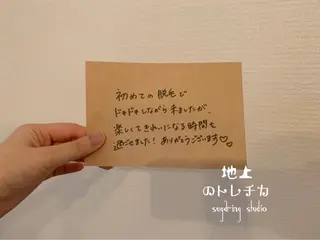 初めての脱毛で
ドキドキしながら来ましたが、
楽しくてきれいになる時間を
過ごせました！ありがとうございます♡♡
地上
のトレチカ
sugaring studio